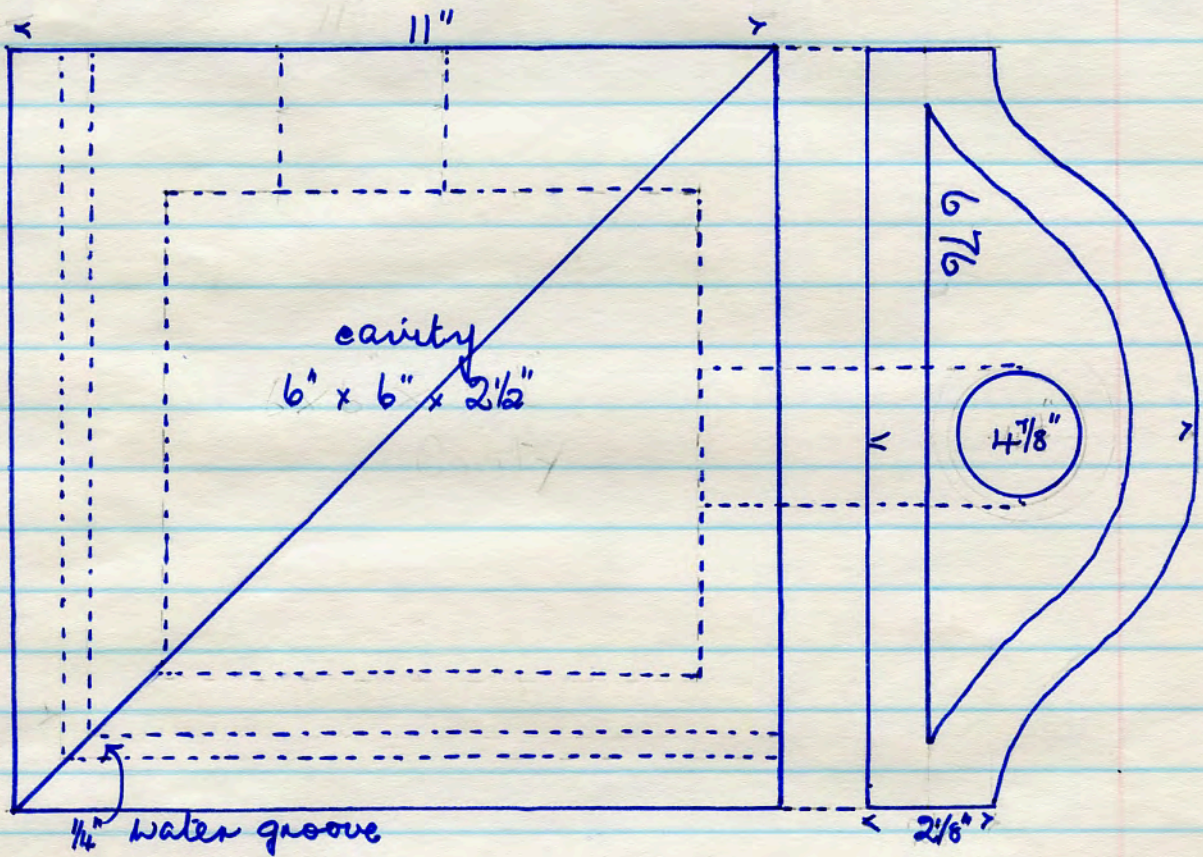 11"
cavity
6" x 6" x 2 1/2"
4 7/8"
1/4" water groove
2 1/8"